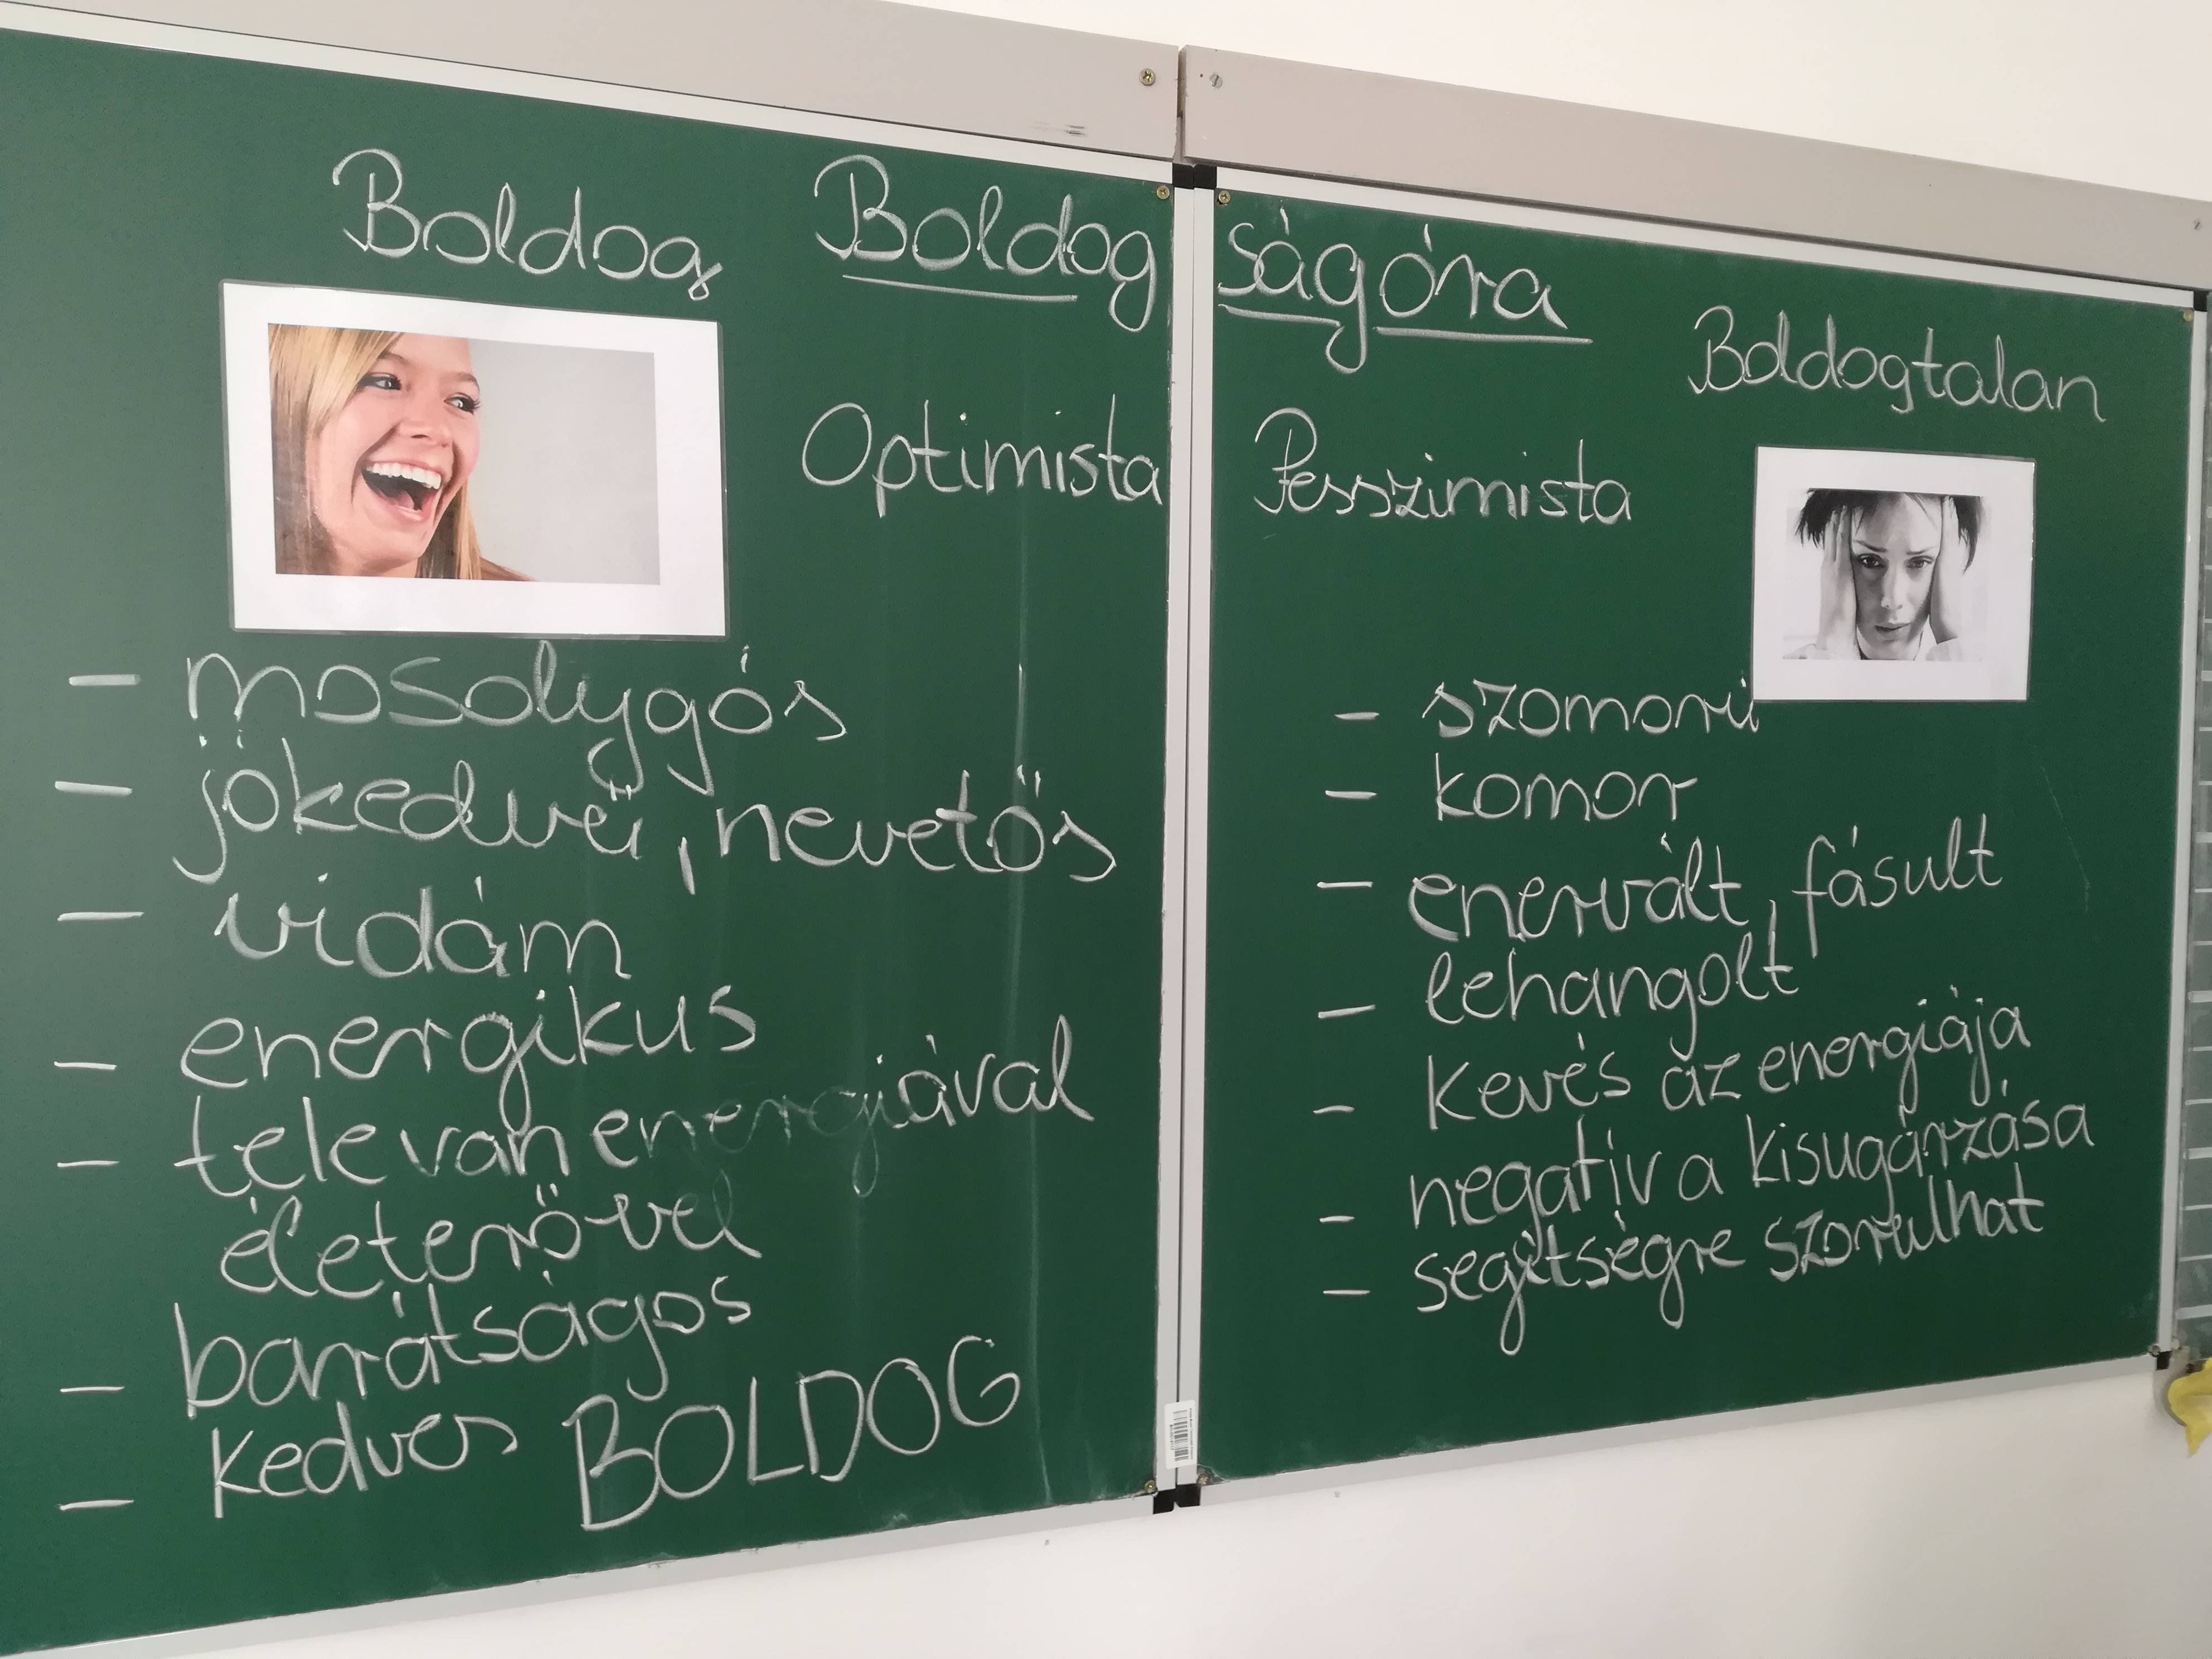 Boldog
Boldogságóra
Boldogtalan
Optimista
Pesszimista
- mosolygós
- jókedvű, nevetős
- vidám
- energikus
- tele van energiával
életerővel
- barátságos
- kedves
BOLDOG
- szomorú
- komor
- enervált, fásult
- lehangolt
- kevés az energiája
- negatív a kisugárzása
- segítségre szorulhat